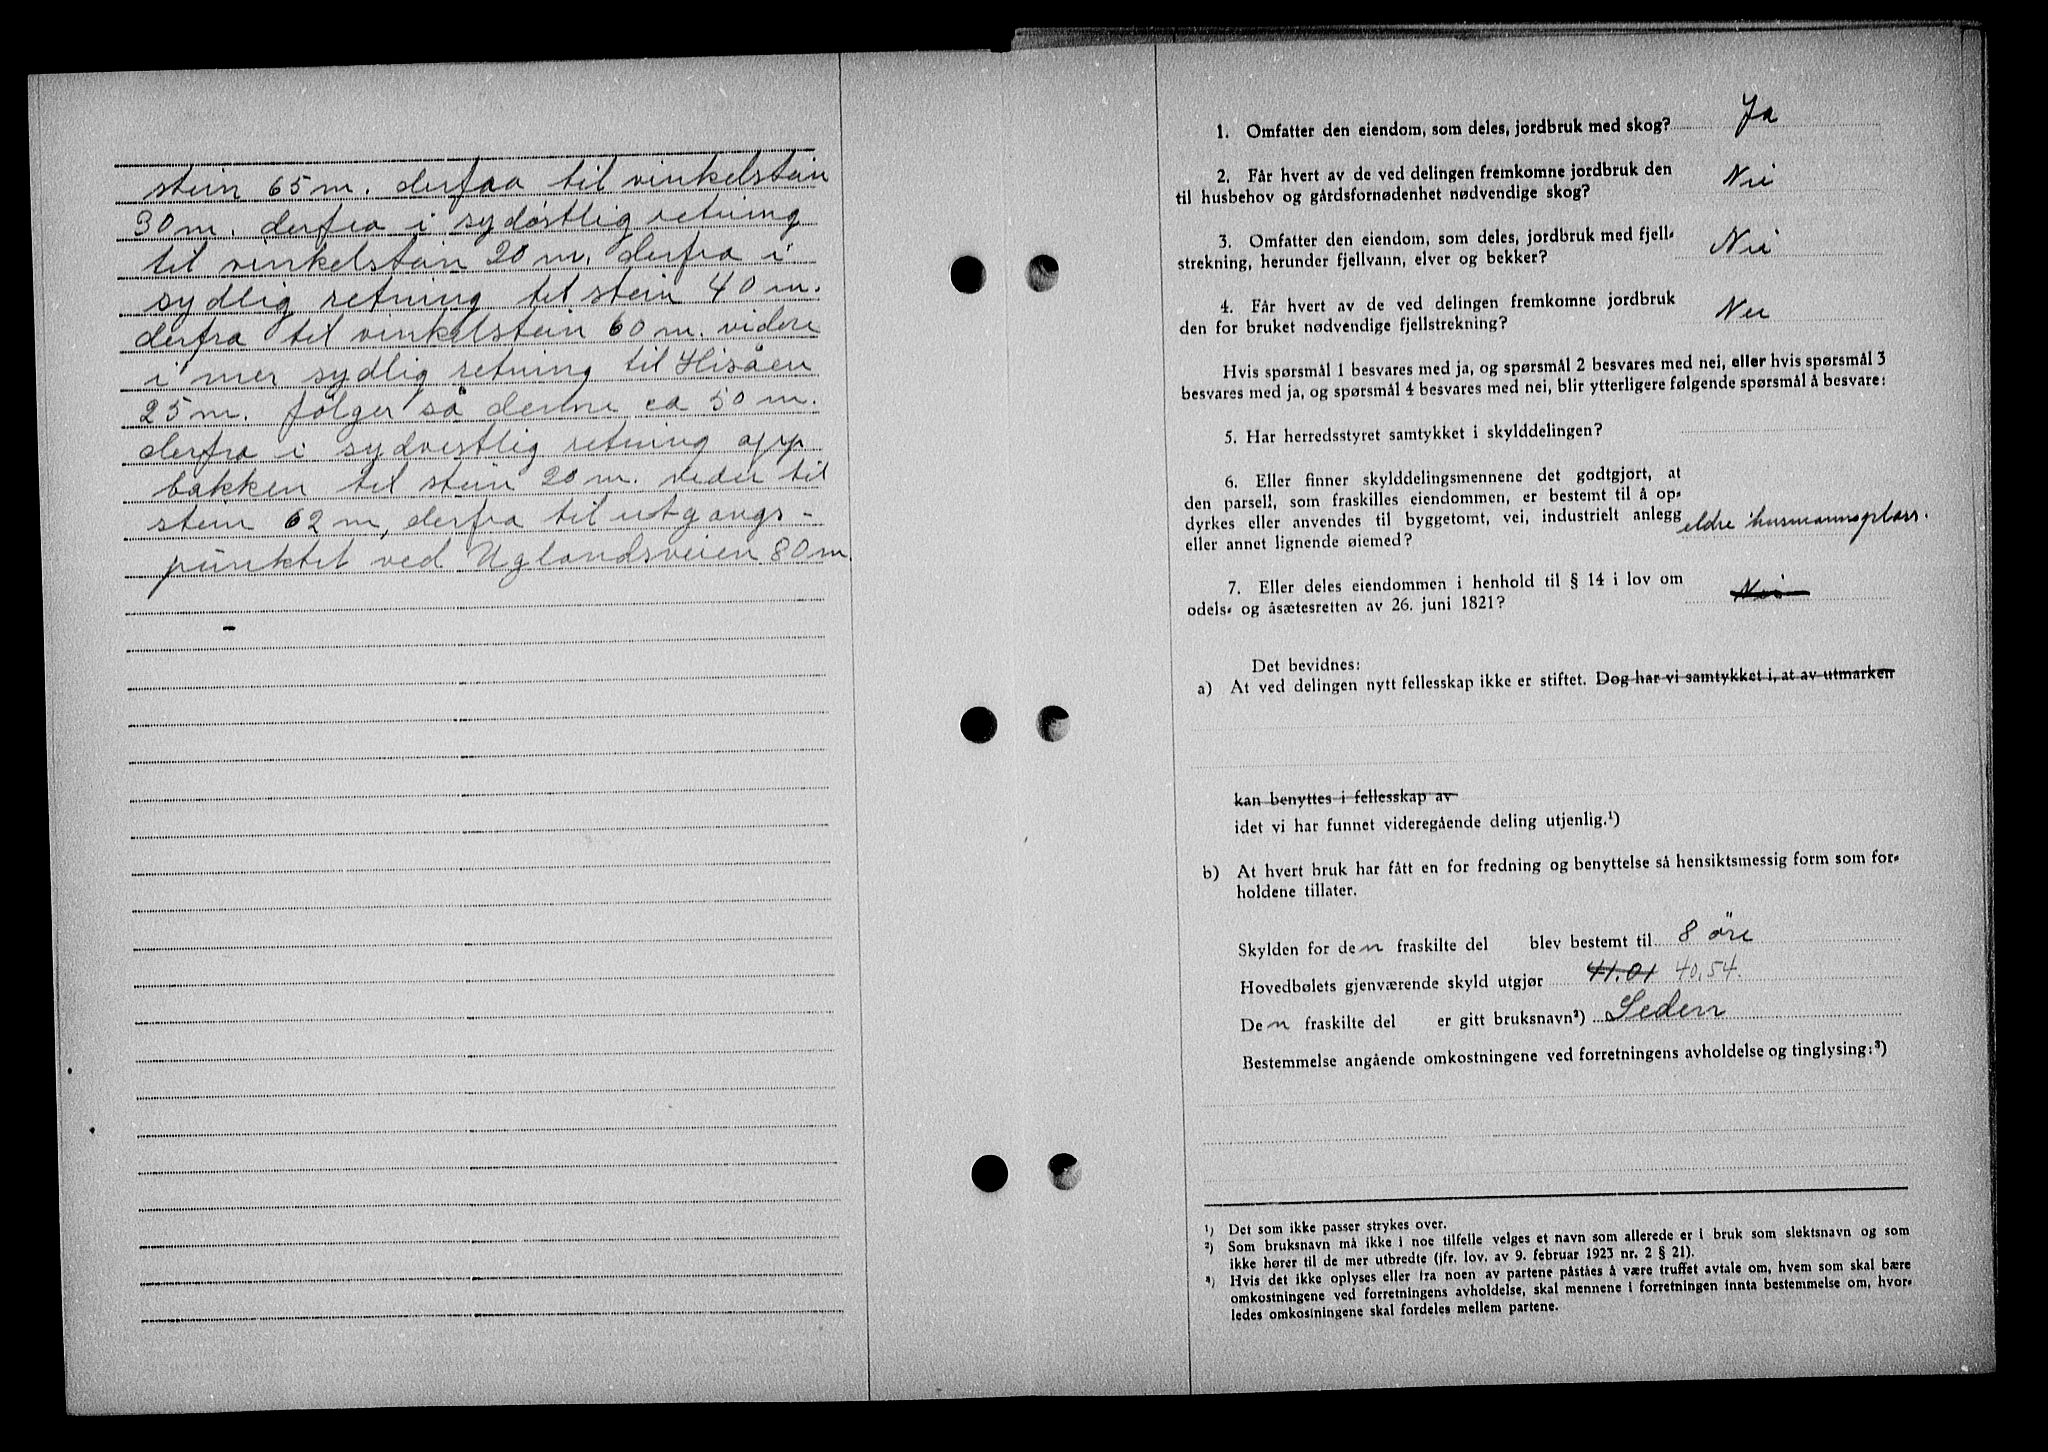 stein 65 m. derfra til vinkelstein
30 m. derfra i sydöstlig retning
til vinkelstein 20 m. derfra i
sydlig retning til stein 40 m.
derfra til vinkelstein 60 m. videre
i mer sydlig retning til Hisåen
25 m. fölger så denne ca 50 m.
derfra i sydvestlig retning opp
bakken til stein 20 m. vider til
stein 62 m, derfra til utgangs-
punktet ved Uglandsveien 80 m.
1. Omfatter den eiendom, som deles, jordbruk med skog? Ja
2. Får hvert av de ved delingen fremkomne jordbruk den
til husbehov og gårdsfornødenhet nødvendige skog? Nei
3. Omfatter den eiendom, som deles, jordbruk med fjell-
strekning, herunder fjellvann, elver og bekker? Nei
4. Får hvert av de ved delingen fremkomne jordbruk
den for bruket nødvendige fjellstrekning? Nei
Hvis spørsmål 1 besvares med ja, og spørsmål 2 besvares med nei, eller hvis spørsmål 3
besvares med ja, og spørsmål 4 besvares med nei, blir ytterligere følgende spørsmål å besvare:
5. Har herredsstyret samtykket i skylddelingen?
6. Eller finner skylddelingsmennene det godtgjort, at
den parsell, som fraskilles eiendommen, er bestemt til å op-
dyrkes eller anvendes til byggetomt, vei, industrielt anlegg
eller annet lignende øiemed? eldre husmannsplass.
7. Eller deles eiendommen i henhold til § 14 i lov om
odels- og åsætesretten av 26. juni 1821? Nei
Det bevidnes:
a) At ved delingen nytt fellesskap ikke er stiftet. Dog har vi samtykket i, at av utmarken
kan benyttes i fellesskap av
idet vi har funnet videregående deling utjenlig.¹)
b) At hvert bruk har fått en for fredning og benyttelse så hensiktsmessig form som for-
holdene tillater.
Skylden for den fraskilte del blev bestemt til 8 öre
Hovedbølets gjenværende skyld utgjør 41.01 40,54.
Den fraskilte del er gitt bruksnavn²) Leden
Bestemmelse angående omkostningene ved forretningens avholdelse og tinglysing:³)
¹) Det som ikke passer strykes over.
²) Som bruksnavn må ikke i noe tilfelle velges et navn som allerede er i bruk som slektsnavn og som
ikke hører til de mer utbredte (jfr. lov. av 9. februar 1923 nr. 2 § 21).
³) Hvis det ikke oplyses eller fra noen av partene påståes å være truffet avtale om, hvem som skal bære
omkostningene ved forretningens avholdelse, skal mennene i forretningen innta bestemmelse om, hvor-
ledes omkostningene skal fordeles mellem partene.